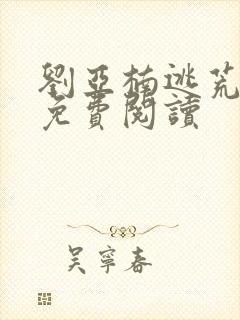 劉亞楠逃荒
免費閱讀
吳寧春